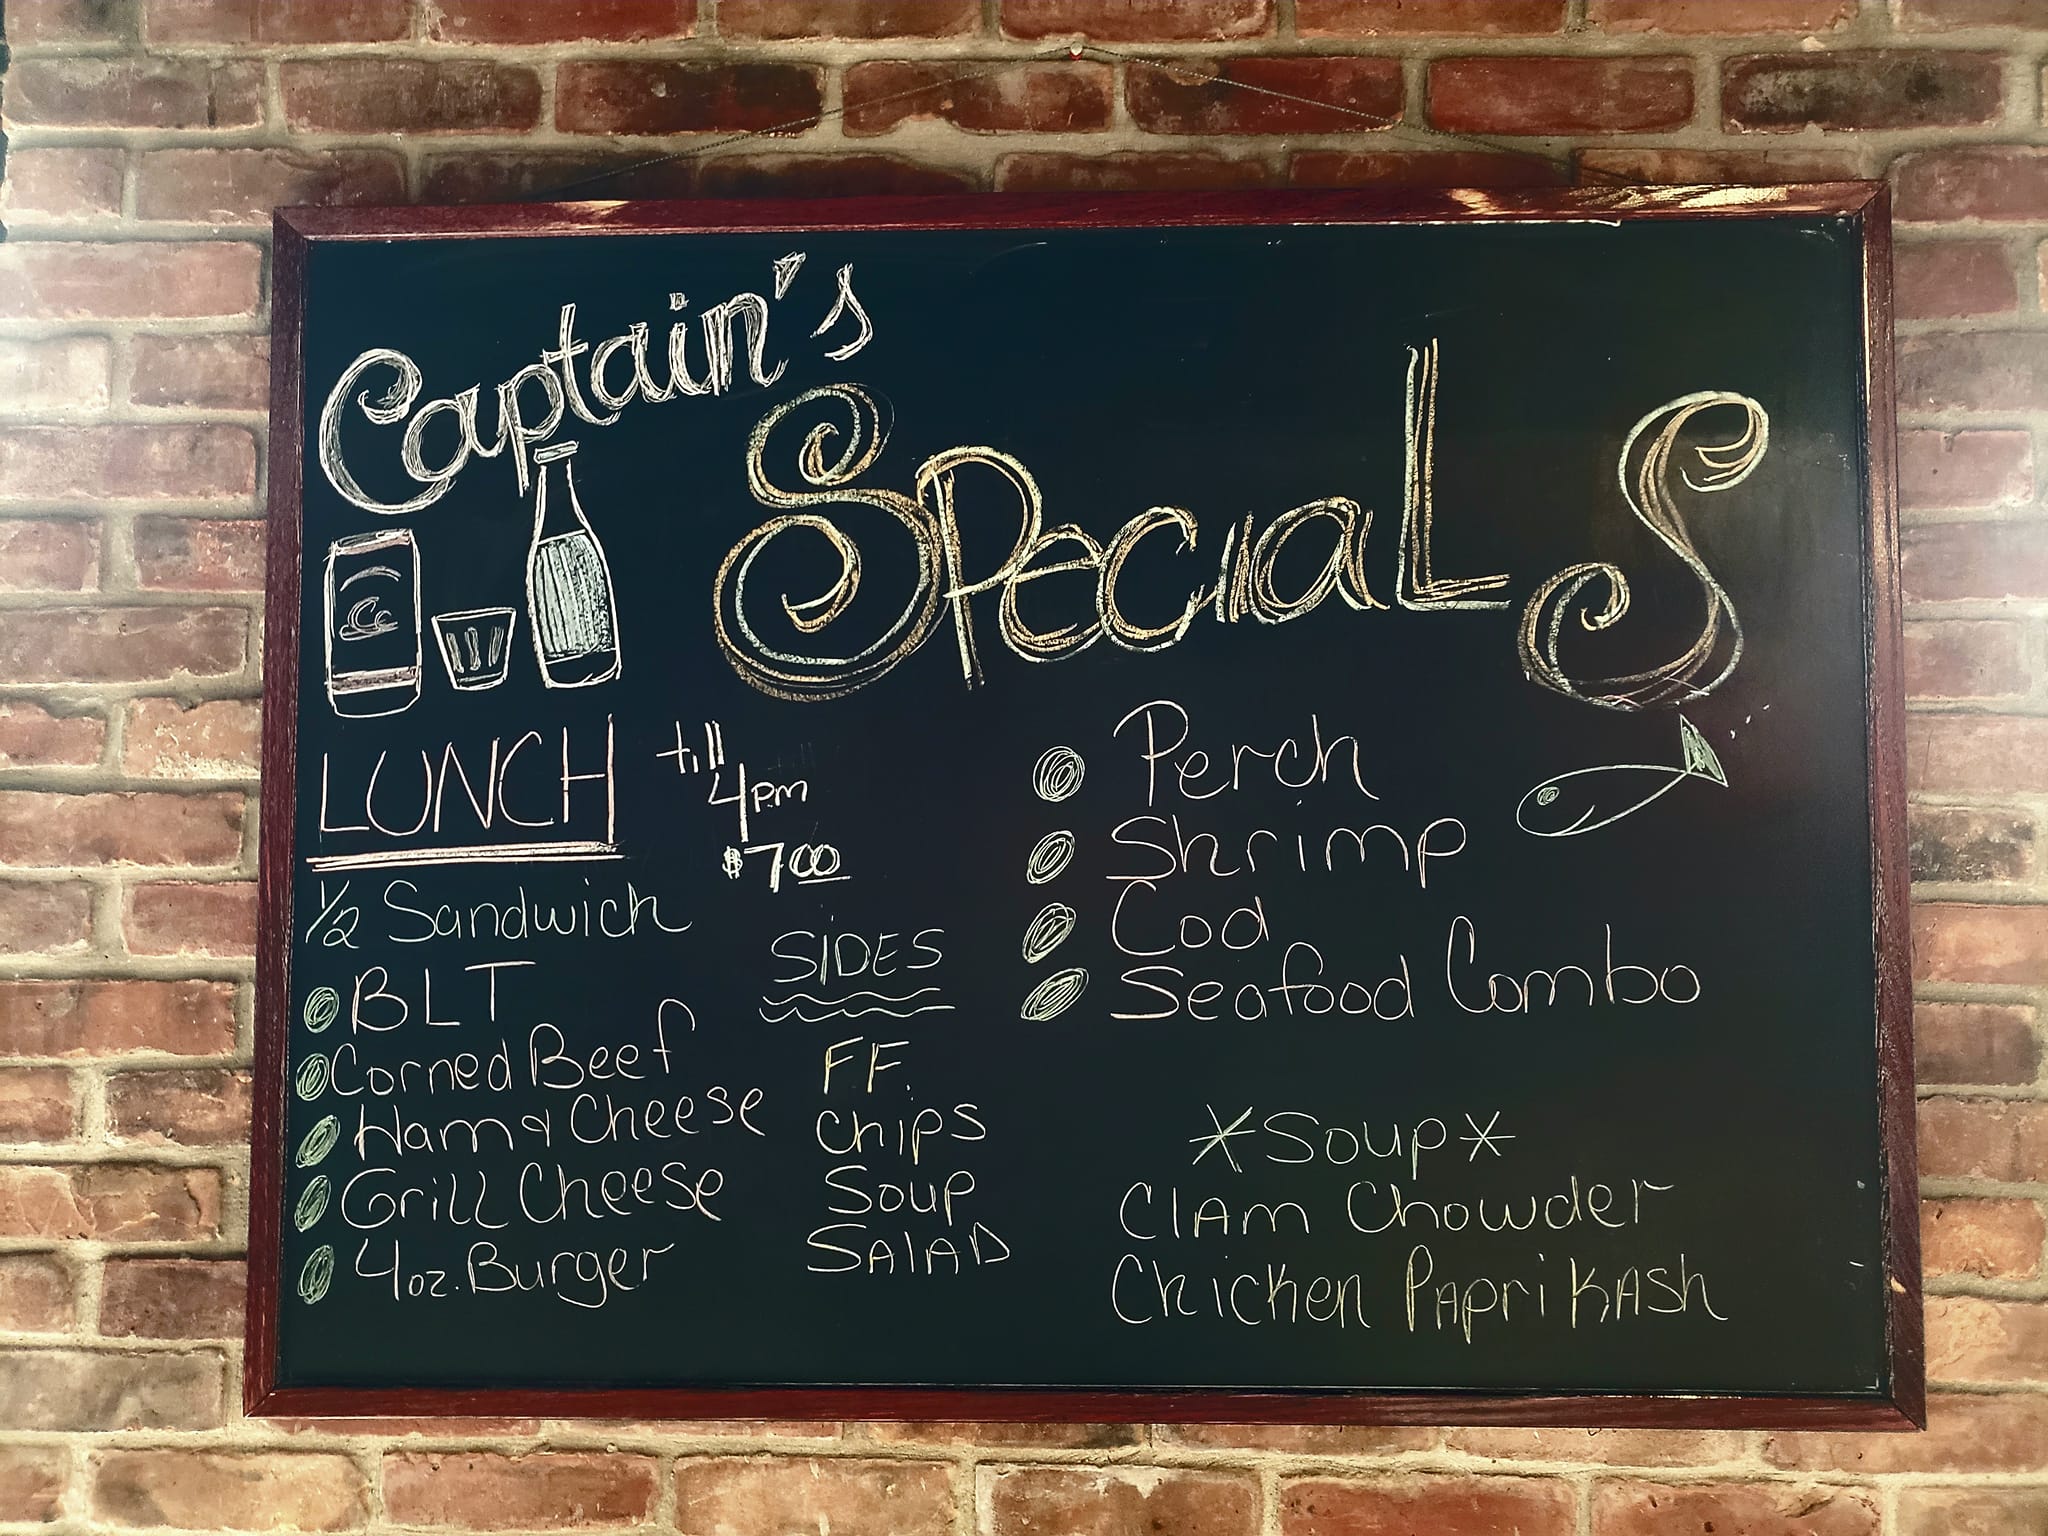 Captain's
SpeciaLS
Cc
LUNCH
till
4pm
$7.00
1/2 Sandwich
BLT
Corned Beef
Ham & Cheese
Grill Cheese
4oz. Burger
SIDES
FF.
chips
Soup
SAlAD
Perch
Shrimp
Cod
Seafood Combo
*Soup*
ClAm Chowder
Chicken PApriKASh